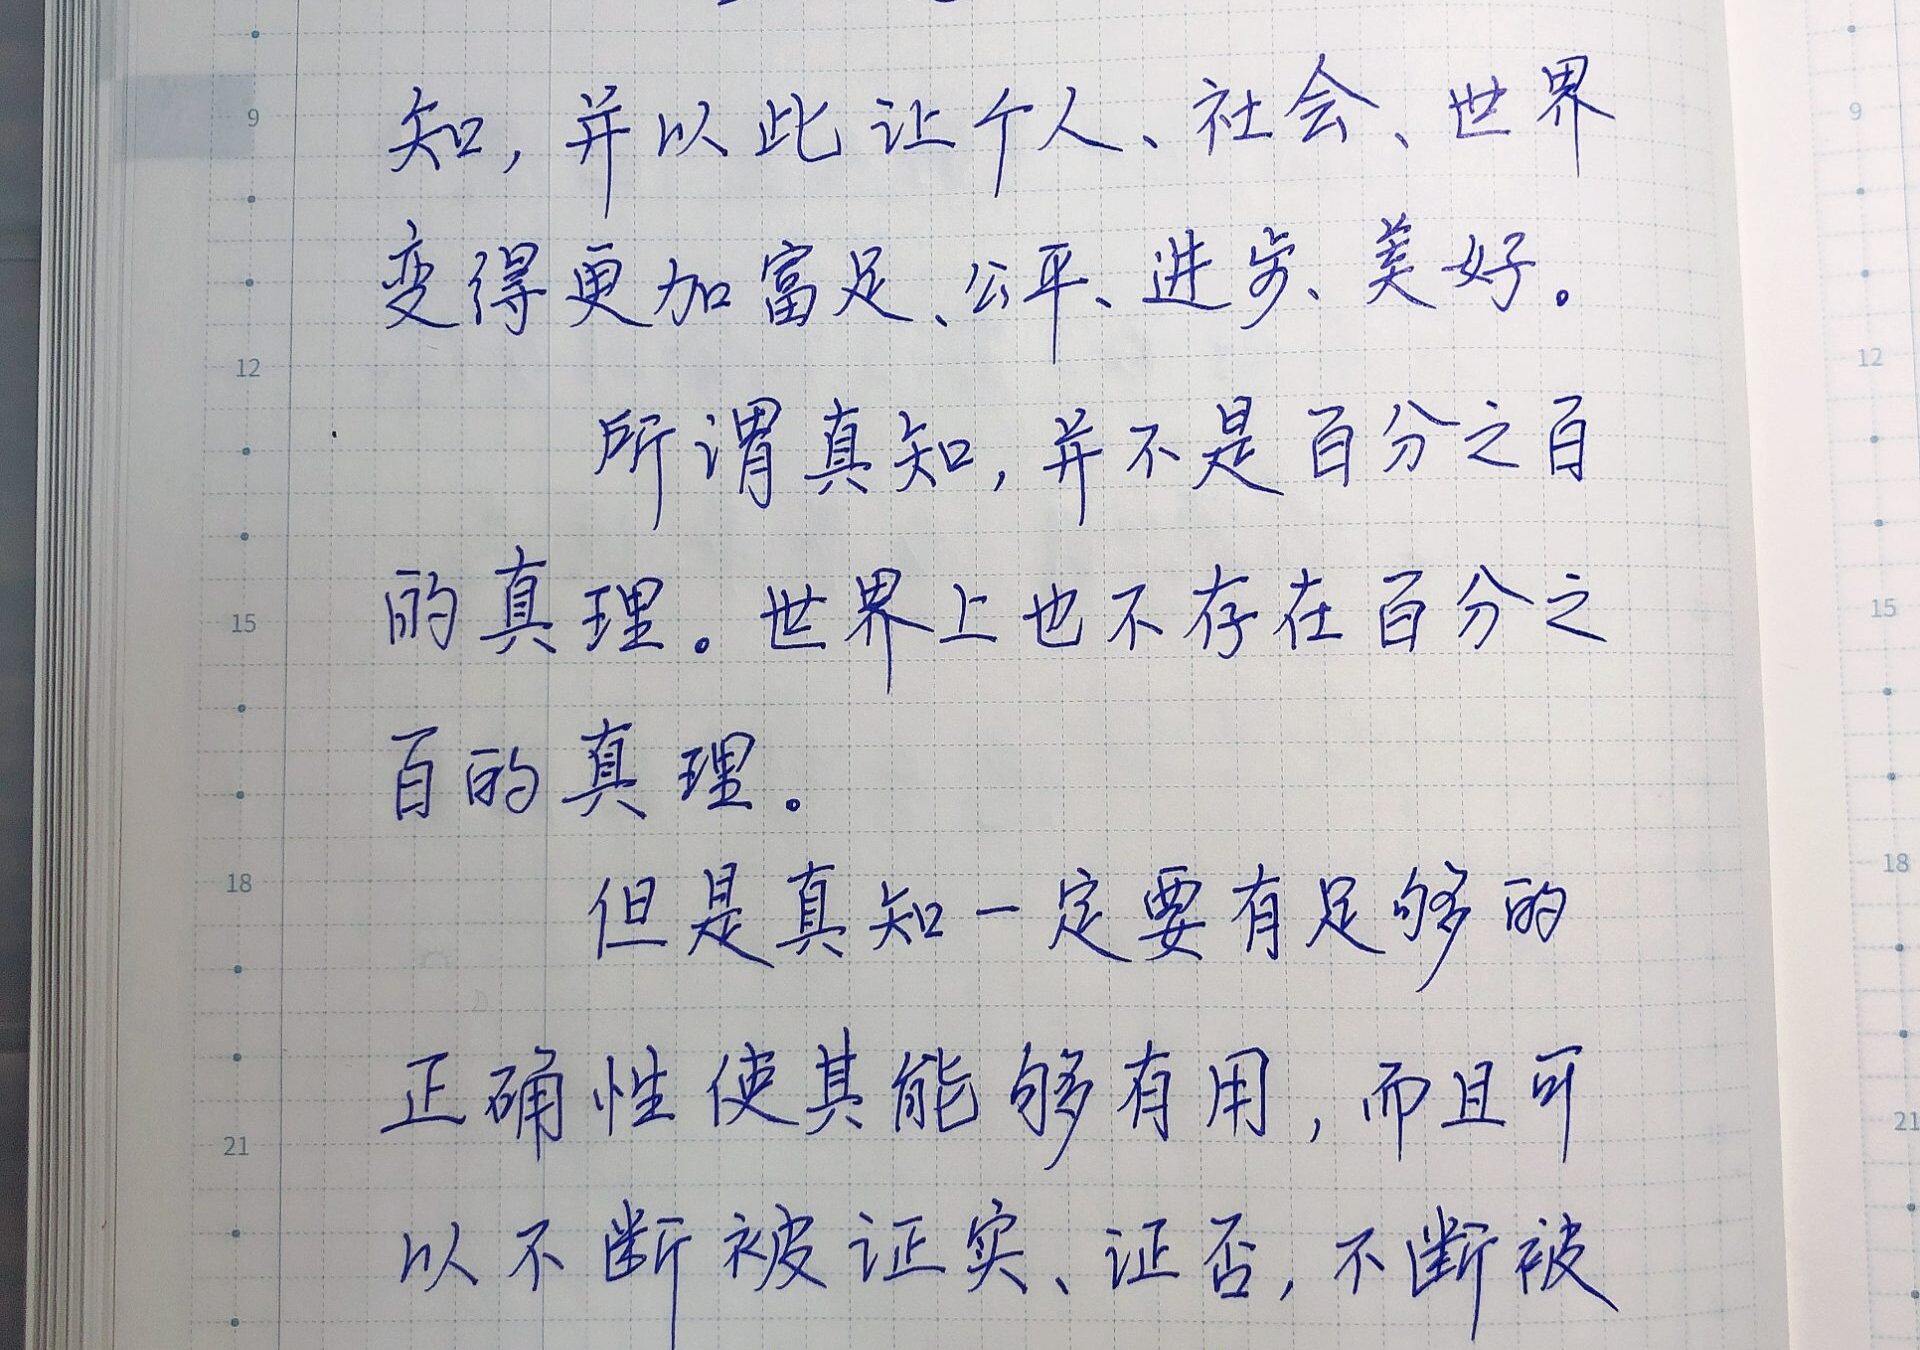 9
知，并以此让个人、社会、世界
9
变得更加富足、公平、进步、美好。
12
12
所谓真知，并不是百分之百
15
的真理。世界上也不存在百分之
15
百的真理。
18
但是真知一定要有足够的
18
正确性使其能够有用，而且可
21
21
以不断被证实、证否，不断被